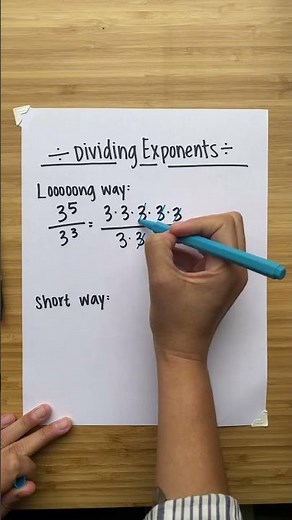 ÷ Dividing Exponents ÷
Looooong way:
3⁵/3³ = 3·3·3·3·3/3·3
Short way: